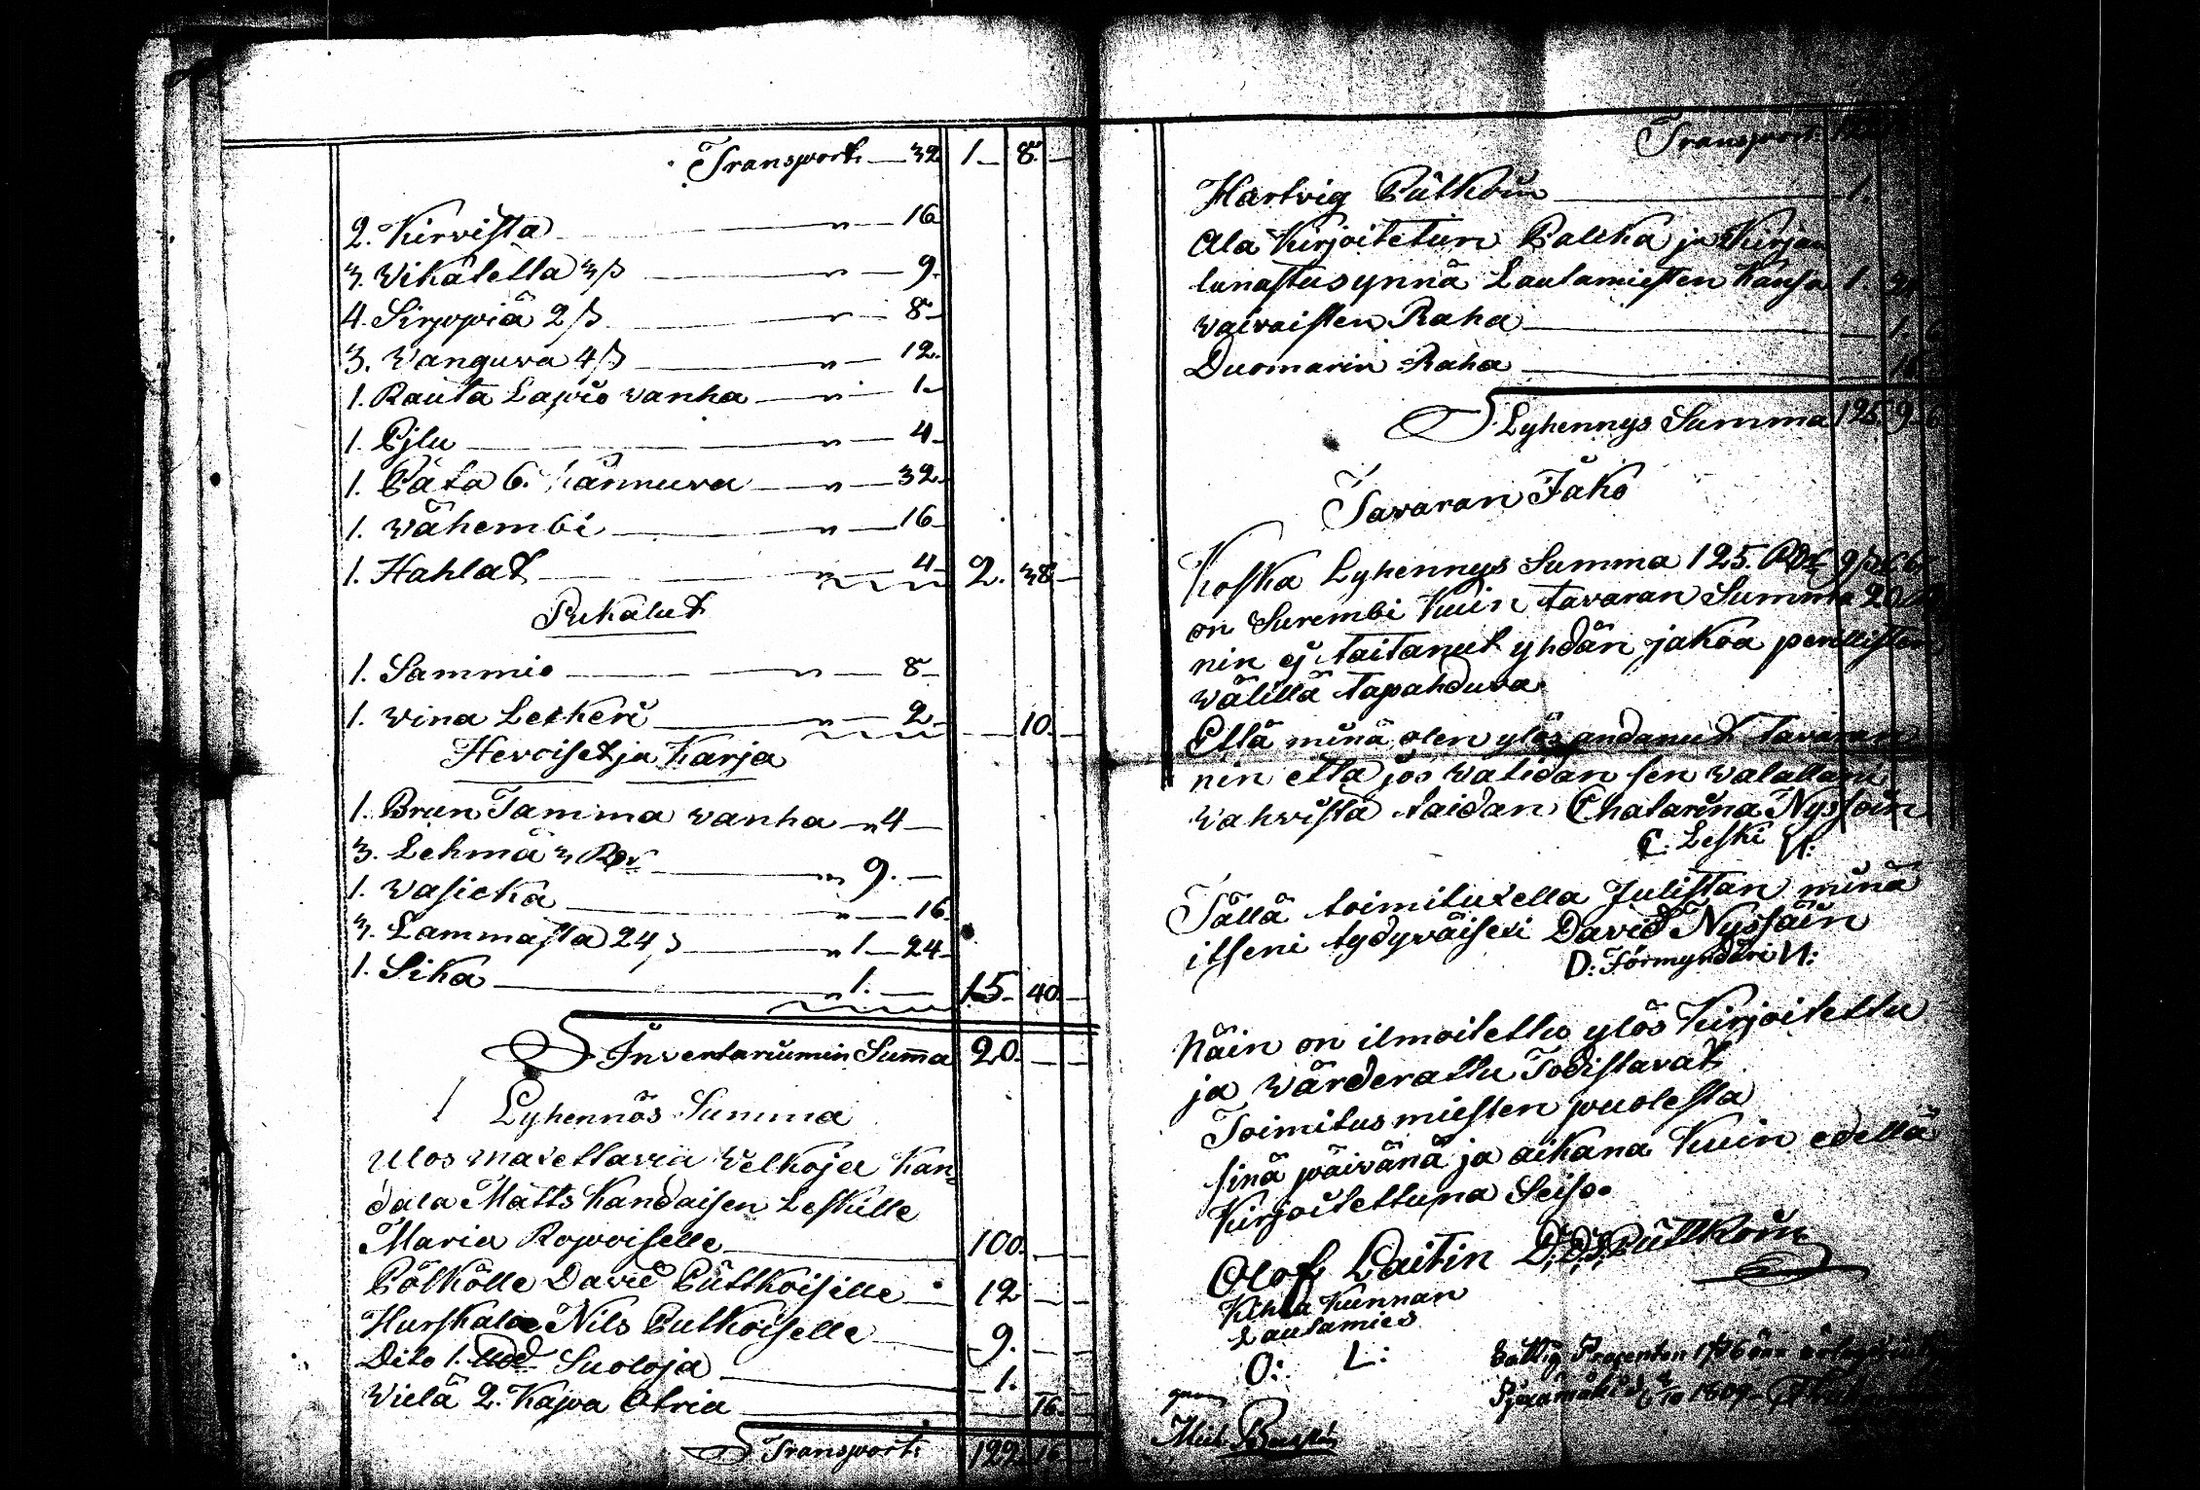 Transport. — 32 1 — 8 —
2. Kirvista — " — 16
3. Wikátetta 3 ß — " — 9.
4. Sirppiä 2 ß — " — 8 —
3. Wanguva 4 ß — " — 12.
1. Rauta Lapio vanha — " — 1 —
1. Pjlu — " — 4 —
1. Páta 6. kannuva — " — 32 —
1. wähembi — " — 16
1. Hahlat — " — 4 — 2. 38 —
Pukalut
1. Sammio — " — 8 —
1. wina Leikeri — " — 2 — — 10 —
Hevoiset ja Karja
1. Brun Tamma wanha — " 4 —
3. Lehmä 3 Rdr — " 9. —
1. wasicka — " — 16
3. Lammasta 24 ß — " 1 — 24 —
1. Sika — " 1. — 15 — 40 —
Inventariumin Sum̄a 20. — —
Lyhennös Summa
Ulos maxettavia welkoja Kan
dala Matts Kandaisen Leskille
Maria Ropvoiselle — 100. — —
Pölkölle David Püttkoiselle — 12 — —
Hurskalae Nils Putkoiselle — 9. — —
Dito 1. Suoloja — 1. —
Wielä 2. Kapva Otria — 16. —
Transport: 122 16
Transport:
Hartvig Pütkoin — 1.
Ala Kirjoitetun Palcka ja Kirjan
lunastus ynnä Lautamiesten Kansa 1.
waivaisten Raha — 1.
Duomarin Raha —
Lyhennys Summa 125. 9 6
Tavaran Jako
Koska Lyhennys Summa 125. Rdr 9 ß 6
on Surembi Kuin tavaran Summa 20
nin ej taitanut yhdän jakoa perillisten
wälillä tapahduva.
Että minä olen ylös andanut tavaran
nin että jos walidan sen walallani
wahvista taidan Chatarina Nyssöin
C. Leski N:
Tällä toimituxella Julistan minä
itseni tydyväisexi David Nyssöin
D: Förmyndäri N:
Näin on ilmoitettu ylös Kirjoitettu
ja wärderattu Todistavat
Toimitus miesten puolesta
sinä päivänä ja aikana Kuin edellä
Kirjoitettuna Seiso.
Olof Laitin Püttkoin
Kihla Kunnan
Lautamies
O: L: